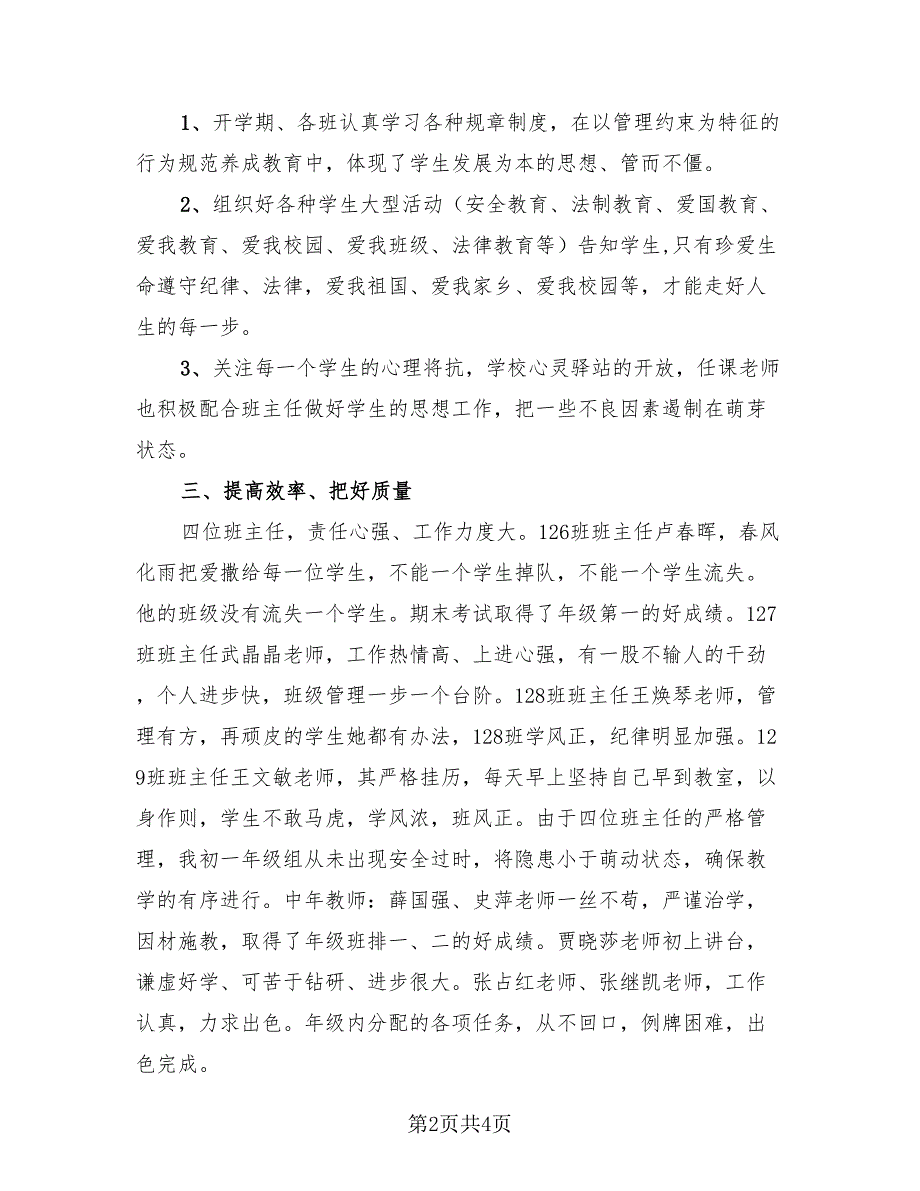 1、开学期、各班认真学习各种规章制度，在以管理约束为特征的
行为规范养成教育中，体现了学生发展为本的思想、管而不僵。
2、组织好各种学生大型活动（安全教育、法制教育、爱国教育、
爱我教育、爱我校园、爱我班级、法律教育等）告知学生,只有珍爱生
命遵守纪律、法律，爱我祖国、爱我家乡、爱我校园等，才能走好人
生的每一步。
3、关注每一个学生的心理将抗，学校心灵驿站的开放，任课老师
也积极配合班主任做好学生的思想工作，把一些不良因素遏制在萌芽
状态。
三、提高效率、把好质量
四位班主任，责任心强、工作力度大。126班班主任卢春晖，春风
化雨把爱撒给每一位学生，不能一个学生掉队，不能一个学生流失。
他的班级没有流失一个学生。期末考试取得了年级第一的好成绩。127
班班主任武晶晶老师，工作热情高、上进心强，有一股不输人的干劲
，个人进步快，班级管理一步一个台阶。128班班主任王焕琴老师，管
理有方，再顽皮的学生她都有办法，128班学风正，纪律明显加强。12
9班班主任王文敏老师，其严格挂历，每天早上坚持自己早到教室，以
身作则，学生不敢马虎，学风浓，班风正。由于四位班主任的严格管
理，我初一年级组从未出现安全过时，将隐患小于萌动状态，确保教
学的有序进行。中年教师：薛国强、史萍老师一丝不苟，严谨治学，
因材施教，取得了年级班排一、二的好成绩。贾晓莎老师初上讲台，
谦虚好学、可苦于钻研、进步很大。张占红老师、张继凯老师，工作
认真，力求出色。年级内分配的各项任务，从不回口，例牌困难，出
色完成。
第2页共4页